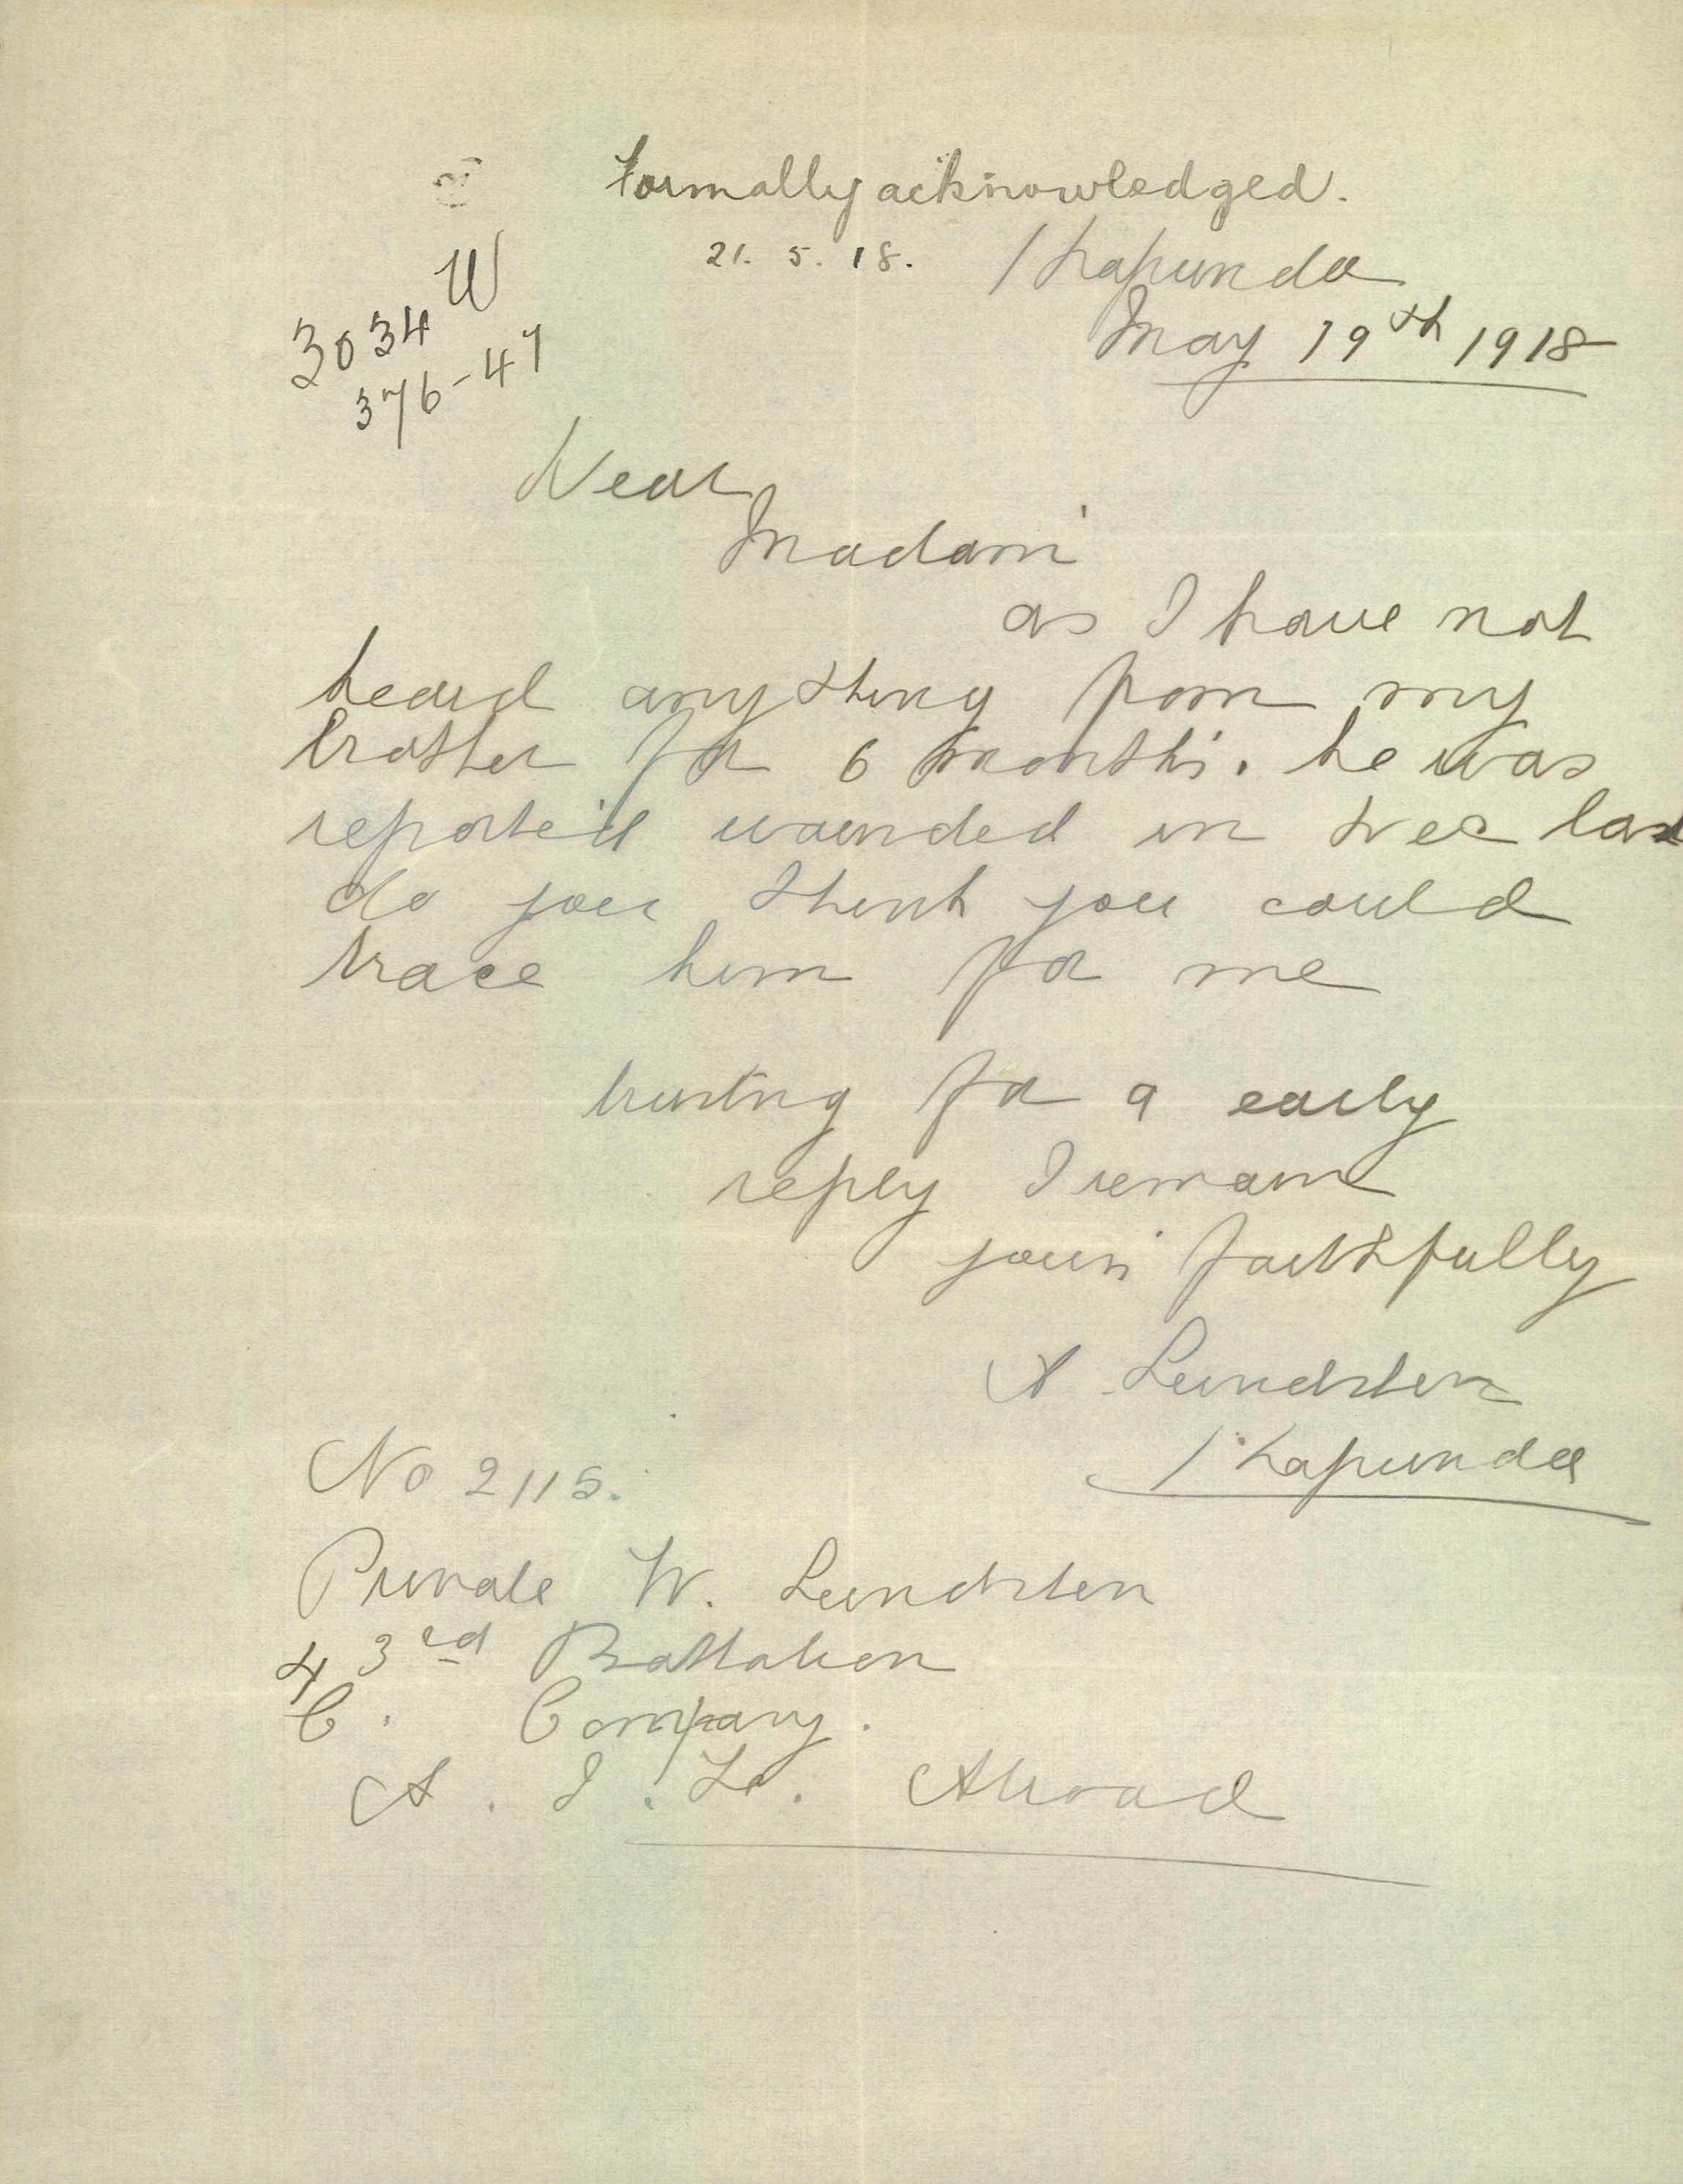 Formally acknowledged.
21. 5. 18.
Kapunda
May 19th 1918
W
3034
376-47
Dear
Madam
as I have not
heard anything from my
brother for 6 months. he was
reported wounded in Dec last
do you think you could
trace him for me
trusting for a early
reply I remain
yours faithfully
A Lundsten
Kapunda
No 2115.
Private W. Lundsten
43rd Battalion
C. Company.
A. I. F. Abroad